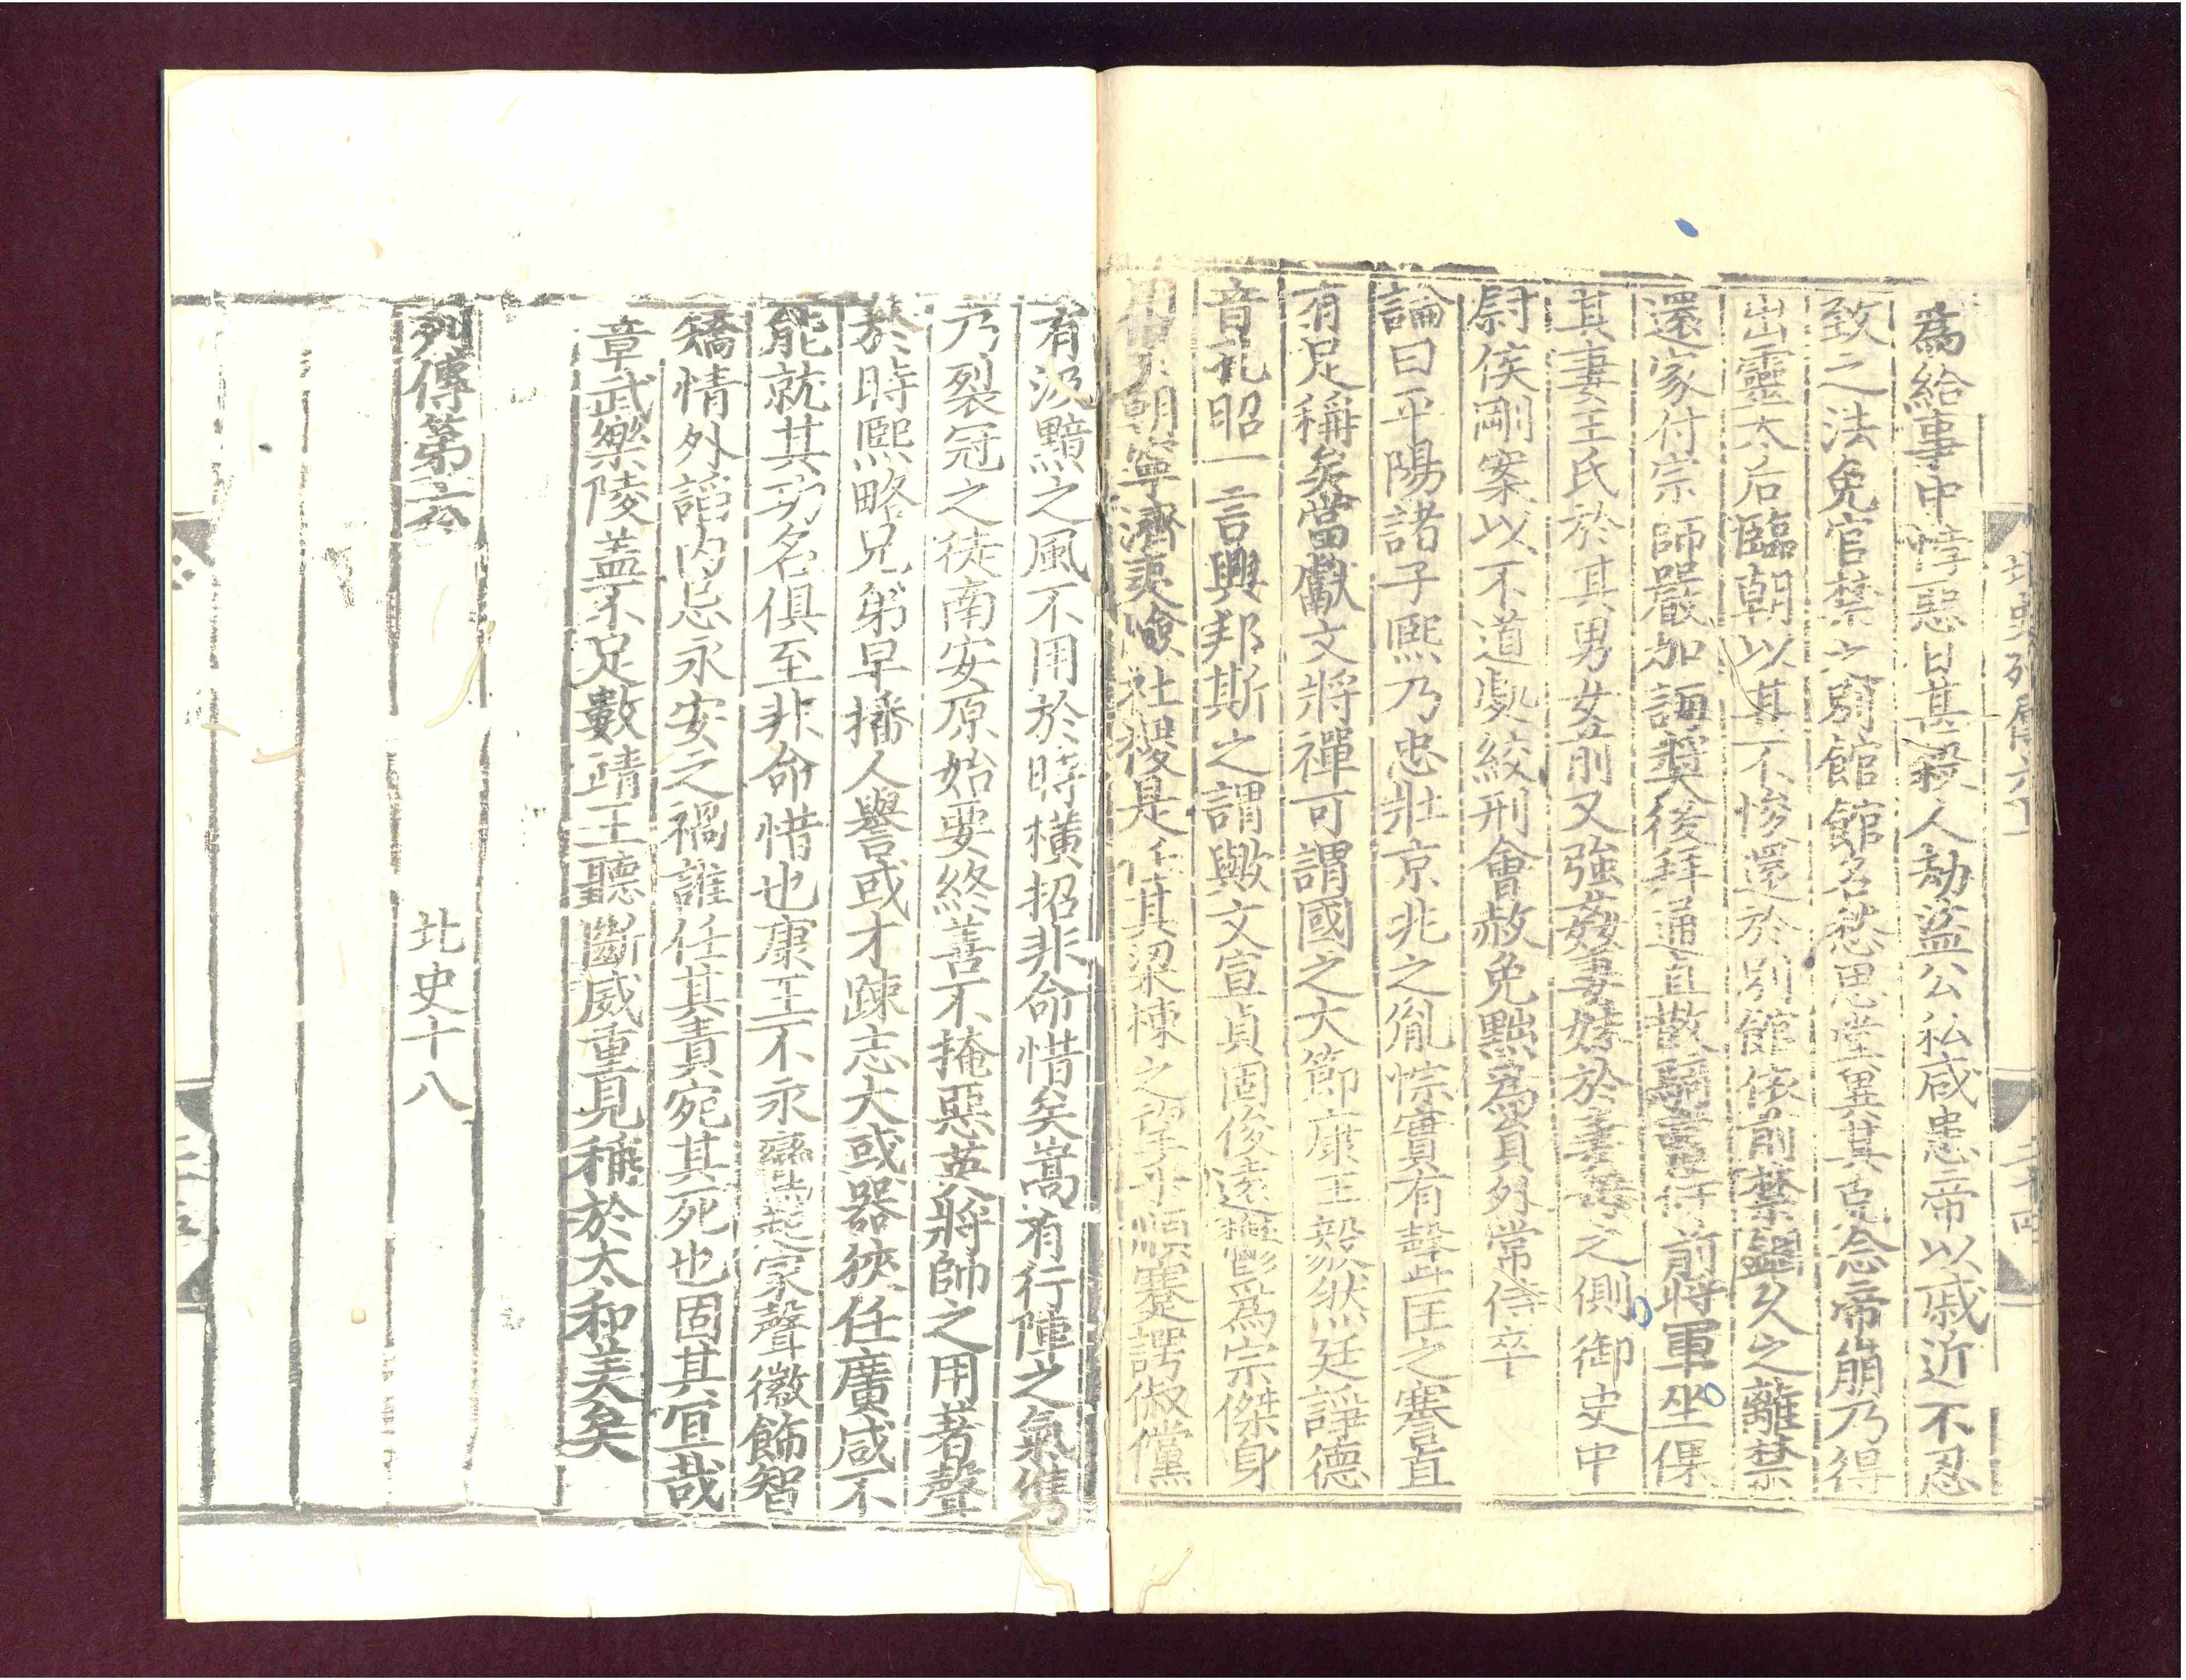 爲給事中悖惡日甚殺人劫盜公私咸患帝以戚近不忍
致之法免官禁之別館館名愁思堂兾其克念帝崩乃得
出靈太后臨朝以其不悛還於別館依前禁錮久之離禁
還家付宗師嚴加誨奬後拜通直散騎常侍前將軍坐倮
其妻王氏於其男女前又強姦妻妹於妻母之側御史中
尉侯剛案以不道處絞刑會赦免黜爲員外常侍卒
論曰平陽諸子熙乃忠壯京兆之胤悰實有聲匡之謇直
有足稱矣當獻文將禪可謂國之大節康王毅然廷諍德
音孔昭一言興邦斯之謂歟文宣貞固俊遠鬱爲宗傑身
用累朝寧濟夷險社稷是任其梁棟之望乎順蹇諤俶儻
有汲黯之風不用於時橫招非命惜矣嵩有行陣之氣儁乃
乃裂冠之徒南安原始要終善不掩惡英將帥之用著聲
於時熙略兄弟早播人譽或才踈志大或器狹任廣咸不
能就其功名俱至非命惜也康王不永鸞起家聲徽飾智
矯情外諂内忌永安之禍誰任其責宛其死也固其宜哉
章武樂陵蓋不足數靖王聽斷威重見稱於太和美矣
列傳第六
北史十八
北史列傳六
二十四